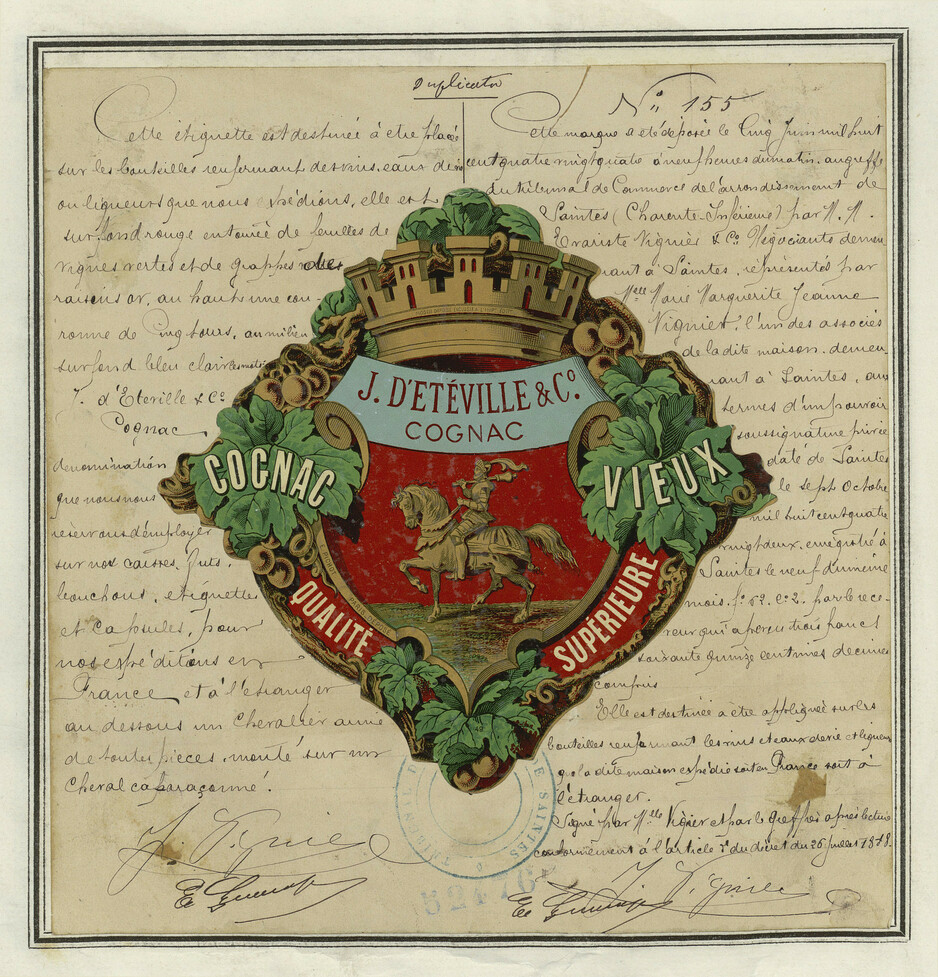 Duplicata
Cette étiquette est destinée à être placée
sur les bouteilles renfermant des vins, eaux de vie
ou liqueurs que nous expédions, elle est
sur fond rouge entourée de feuilles de
vignes vertes et de grappes de
raisins or, au haut une cou-
ronne de Cinq tours, au milieu
sur fond bleu clair les mots
J. d'Eteville & Co
Cognac
denomination
que nous nous
réservons d'employer
sur nos caisses, futs,
bouchons, etiquettes
et capsules, pour
nos expéditions en
France et à l'étranger
au dessous un Chevalier armé
de toutes pieces, monté sur un
Cheval capraçonné.
J. Vignier
No 155
Cette marque a été déposée le Cinq Juin mil huit
cent quatre vingt quatre à neuf heures du matin, au greffe
du tribunal de Commerce de l'arrondissement de
Saintes (Charente-Inférieure) par M. M.
Evariste Vignier & Co Négociants demeu
rant à Saintes, représentés par
Melle Marie Marguerite Jeanne
Vignier, l'un des associés
de la dite maison, demeu-
rant à Saintes, aux
termes d'un pouvoir
sous signature privée
date de Saintes
le sept Octobre
mil huit cent quatre
vingt deux, enregistré à
Saintes le neuf du même
mois, fo 69, Co 2, par le rece-
veur qui a perçu trois francs
soixante quinze centimes decimes
compris
Elle est destinée a être appliquée sur les
bouteilles renfermant les vins et eaux de vie et liqueurs
que la dite maison expédie soit en France soit à
l'étranger.
Signé par Melle Vignier et par le Greffier après lecture
conformément à l'article 5 du décret du 26 juillet 1858.
J. Vignier
J. D'ETÉVILLE & Co.
COGNAC
COGNAC
VIEUX
QUALITÉ
SUPÉRIEURE
DE SAINTES
52476